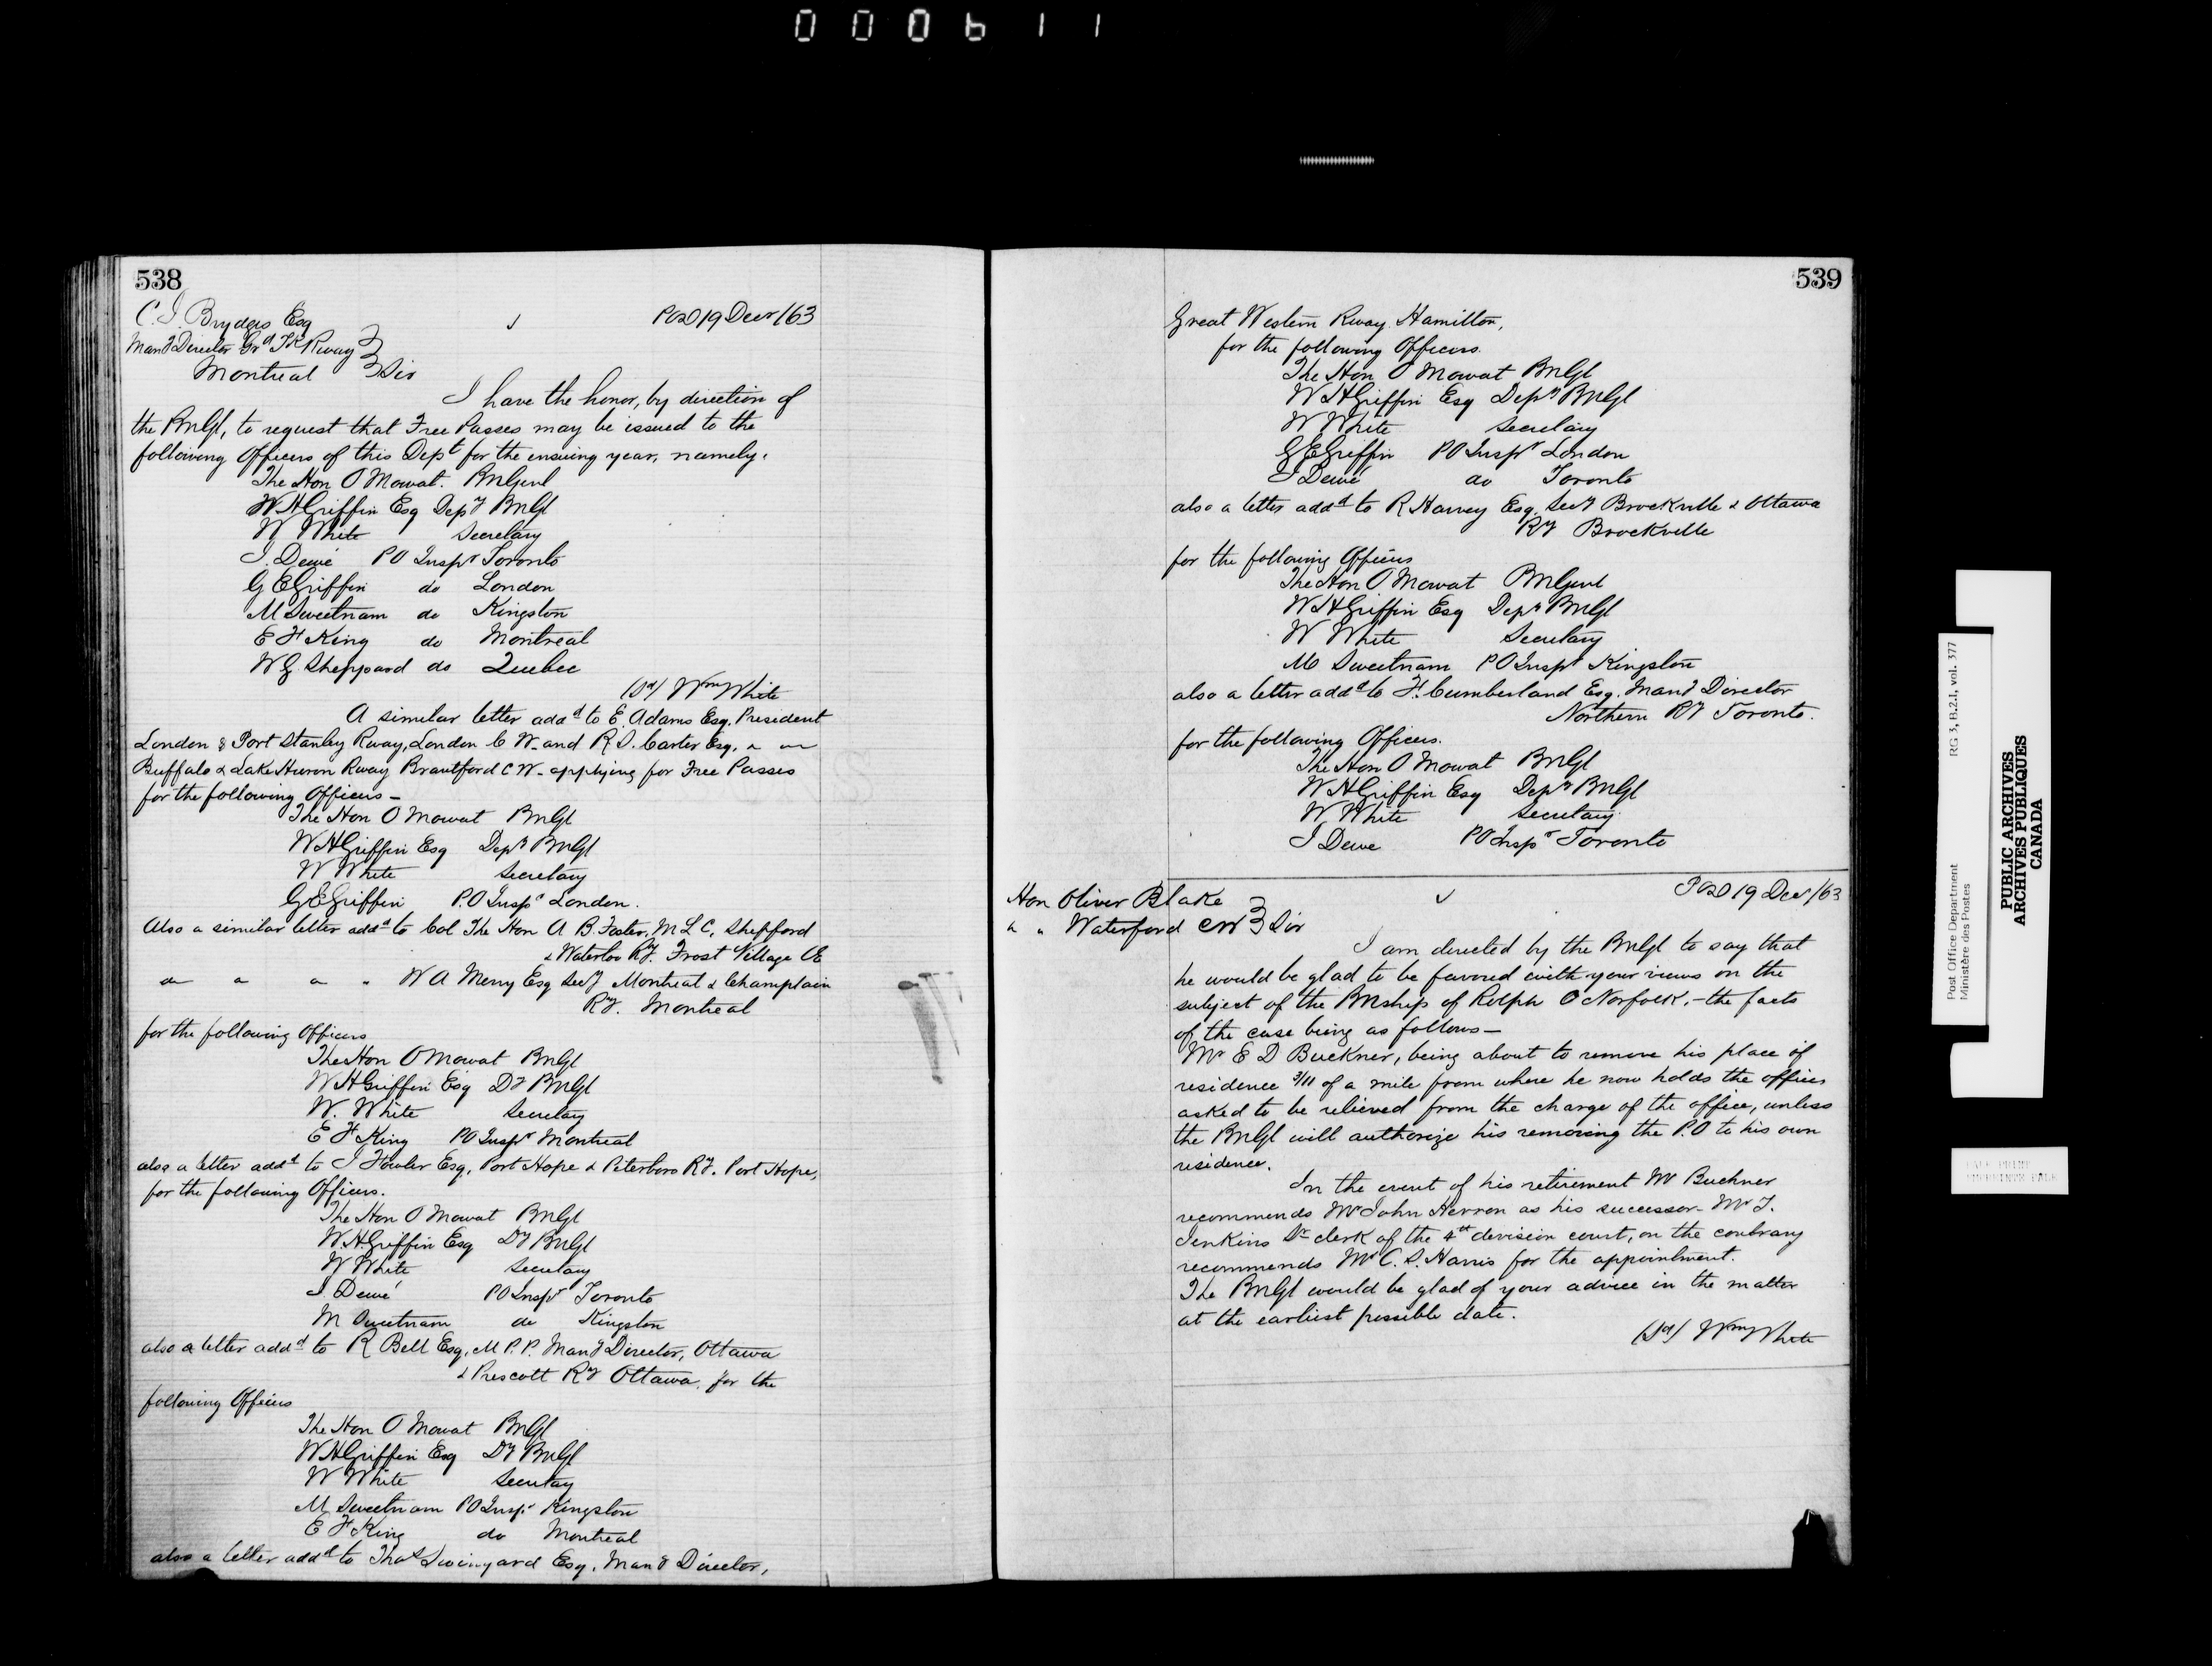 000611
538
C. J. Brydges Esq
Man'g Director Gr'd Tk Rway
Montreal
POD 19 Decr /63
Sir
I have the honor, by direction of
the PmGl, to request that Free Passes may be issued to the
following Officers of this Dept for the ensuing year, namely.
The Hon O Mowat. PmGenl
W H Griffin Esq Depy PmGl
W White Secretary
J. Dewé PO Inspr Toronto
G E Griffin do London
M Sweetnam do Kingston
E F King do Montreal
W G. Sheppard do Quebec
(Sd) Wm White
A similar letter addd to E. Adams Esq. President
London & Port Stanley Rway, London C W. and R. S. Carter Esq. " "
Buffalo & Lake Huron Rway Brantford C W - applying for Free Passes
for the following Officers -
The Hon O Mowat PmGl
W H Griffin Esq Depy PmGl
W White Secretary
G E Griffin P.O Inspr London.
Also a similar letter addd to Col The Hon A B. Foster, M L C, Shefford
& Waterloo Ry. Frost Village CE
do " " " W A Merry Esq Secy Montreal & Champlain
Ry. Montreal
for the following Officers
The Hon O Mowat PmGl
W H Griffin Esq Dy PmGl
W. White Secretary
E F King PO Inspr Montreal
also a letter addd to J Fowler Esq, Port Hope & Peterboro Ry. Port Hope,
for the following Officers.
The Hon O Mowat PmGl
W H. Griffin Esq Dy PmGl
W White Secretary
J. Dewé PO Inspr Toronto
M Sweetnam do Kingston
also a letter addd to R Bell Esq, M P. P. Man'g Director, Ottawa
& Prescott Ry Ottawa, for the
following Officers
The Hon O Mowat PmGl
W H Griffin Esq Dy PmGl
W White Secretary
M Sweetnam PO Inspr Kingston
E F King do Montreal
also a letter addd to Thos Swinyard Esq. Man'g Director,
539
Great Western Rway. Hamilton,
for the following Officers.
The Hon O Mowat PmGl
W H Griffin Esq Depy PmGl
W White Secretary
G E Griffin PO Inspr London
J Dewé do Toronto
also a letter addd to R Harvey Esq. Secy Brockville & Ottawa
Ry Brockville
for the following Officers
The Hon O. Mowat PmGenl
W H Griffin Esq Depy PmGl
W White Secretary
M Sweetnam PO Inspr Kingston
also a letter addd to F. Cumberland Esq. Man'g Director
Northern Ry Toronto.
for the following Officers.
The Hon O Mowat PmGl
W H Griffin Esq Depy PmGl
W White Secretary
J Dewe PO Inspr Toronto
POD 19 Decr /63
Hon Oliver Blake
" " Waterford CW
Sir
I am directed by the PmGl to say that
he would be glad to be favored with your views on the
subject of the PMship of Rolph Co Norfolk, - the facts
of the case being as follows -
Mr E D Buckner, being about to remove his place of
residence 3/11 of a mile from where he now holds the office,
asked to be relieved from the charge of the office, unless
the PmGl will authorize his removing the P.O to his own
residence.
In the event of his retirement Mr Buckner
recommends Mr John Herron as his successor - Mr J.
Jenkins Sr clerk of the 4th division court, on the contrary
recommends Mr C. S. Harris for the appointment.
The PmGl would be glad of your advice in the matter
at the earliest possible date.
(Sd) Wm White
Post Office Department
Ministère des Postes
RG 3, B.2.I, vol. 377
PUBLIC ARCHIVES
ARCHIVES PUBLIQUES
CANADA